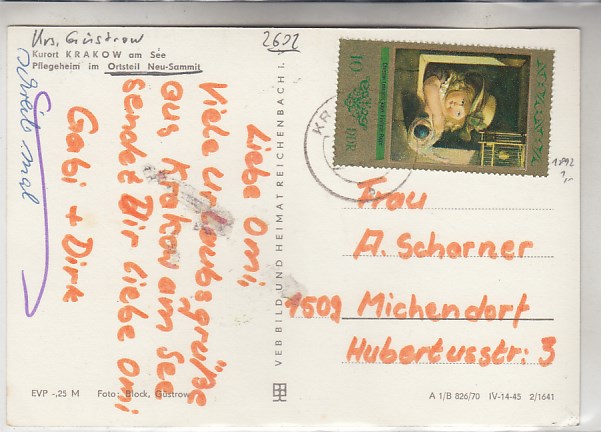 Krs. Güstrow
Kurort KRAKOW am See
Pflegeheim im Ortsteil Neu-Sammit
2602
schreib mal
Liebe Omi,
Viele Urlaubsgrüße
aus Krakow am See
sendet Dir liebe Omi
Gabi + Dirk
VEB BILD UND HEIMAT REICHENBACH i.
10
DDR
KR
1892
1,-
Frau
A. Schorner
1509 Michendorf
Hubertusstr: 3
EVP -,25 M Foto: Block, Güstrow
A 1/B 826/70 IV-14-45 2/1641